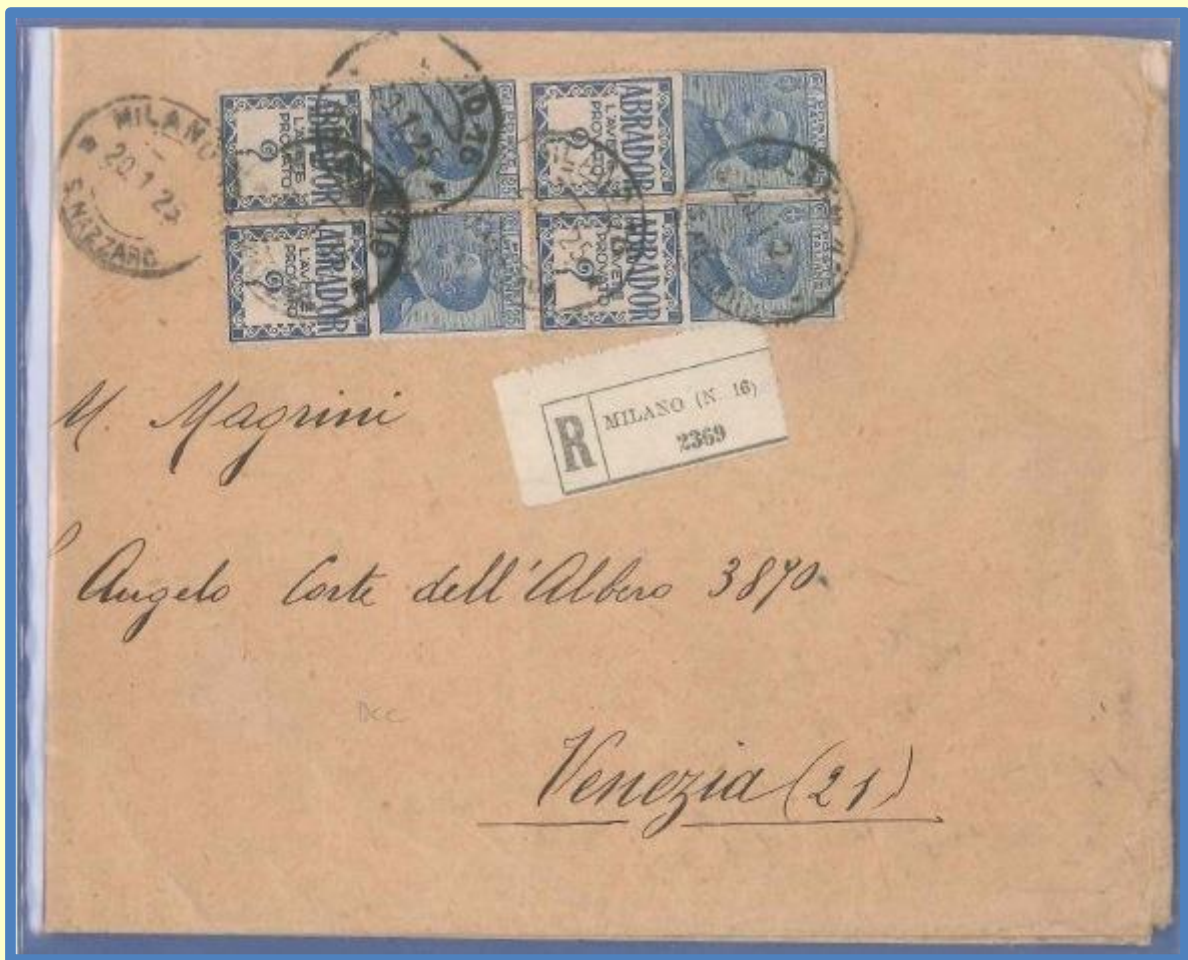 MILANO
20.1.25
S. NAZZARO
ABRADOR
L'AVETE
PROVATO
?
ABRADOR
L'AVETE
PROVATO
?
ABRADOR
L'AVETE
PROVATO
?
ABRADOR
L'AVETE
PROVATO
?
R
MILANO (N 16)
2369
M. Magrini
Angelo Corte dell'Albero 3870
Venezia (21)